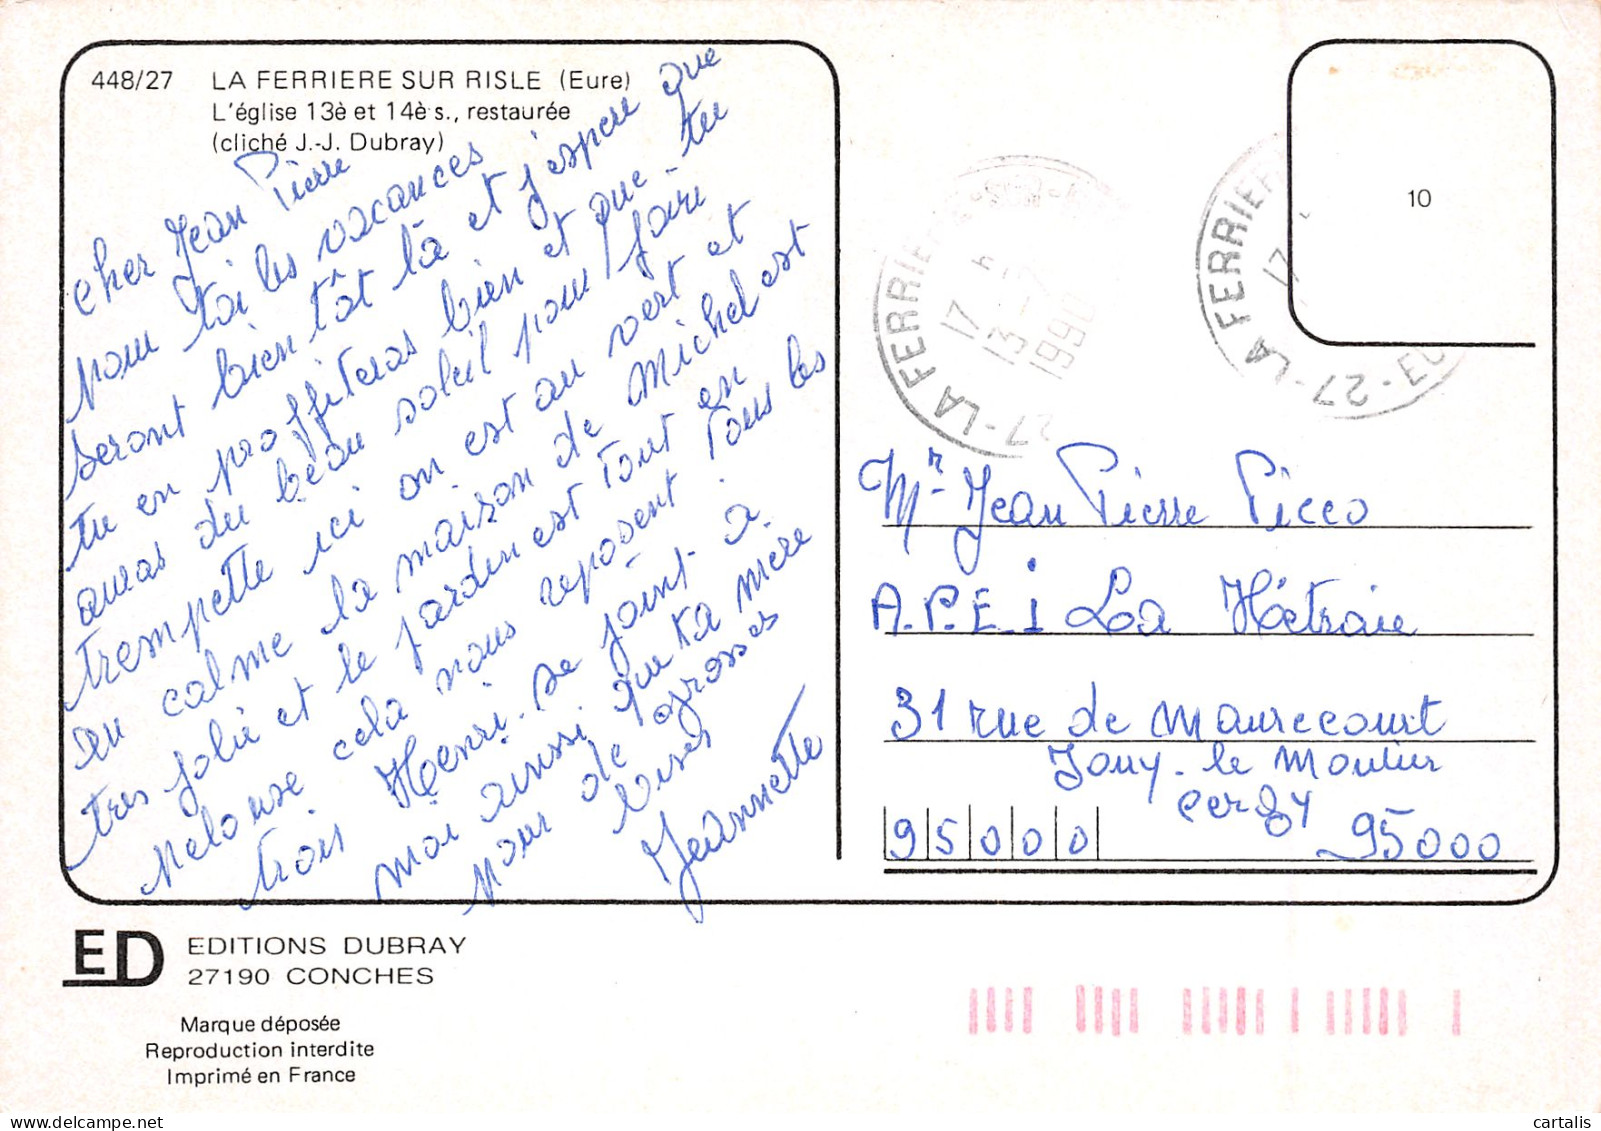 448/27 LA FERRIERE SUR RISLE (Eure)
L'église 13è et 14è s., restaurée
(cliché J.-J. Dubray)
cher Jean Pierre
pour toi les vacances
seront bientôt là et j'espere que
tu en proffiteras bien et que tu
auras du beau soleil pour faire
trempette ici on est au vert et
au calme la maison de Michel est
tres jolie et le jardin est tout en
pelouse cela nous reposent tous les
trois Henri se joint a
moi aussi que ta mère
pour de grosses
bises
Jeannette
27-LA FERRIERE
17
13-7
199
27-LA FERRIER
17
EU
10
Mr Jean Pierre Picco
A.P.E.I La Hêtraie
31 rue de Maurecourt
Jouy-le Moutier
cergy
95000
95000
ED
EDITIONS DUBRAY
27190 CONCHES
Marque déposée
Reproduction interdite
Imprimé en France
cartalis